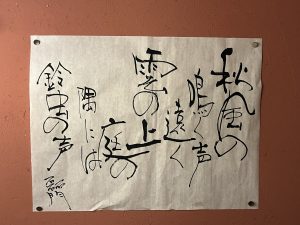 秋風の
鳴く声
遠く
雲の上
庭の
隅には
鈴虫の声